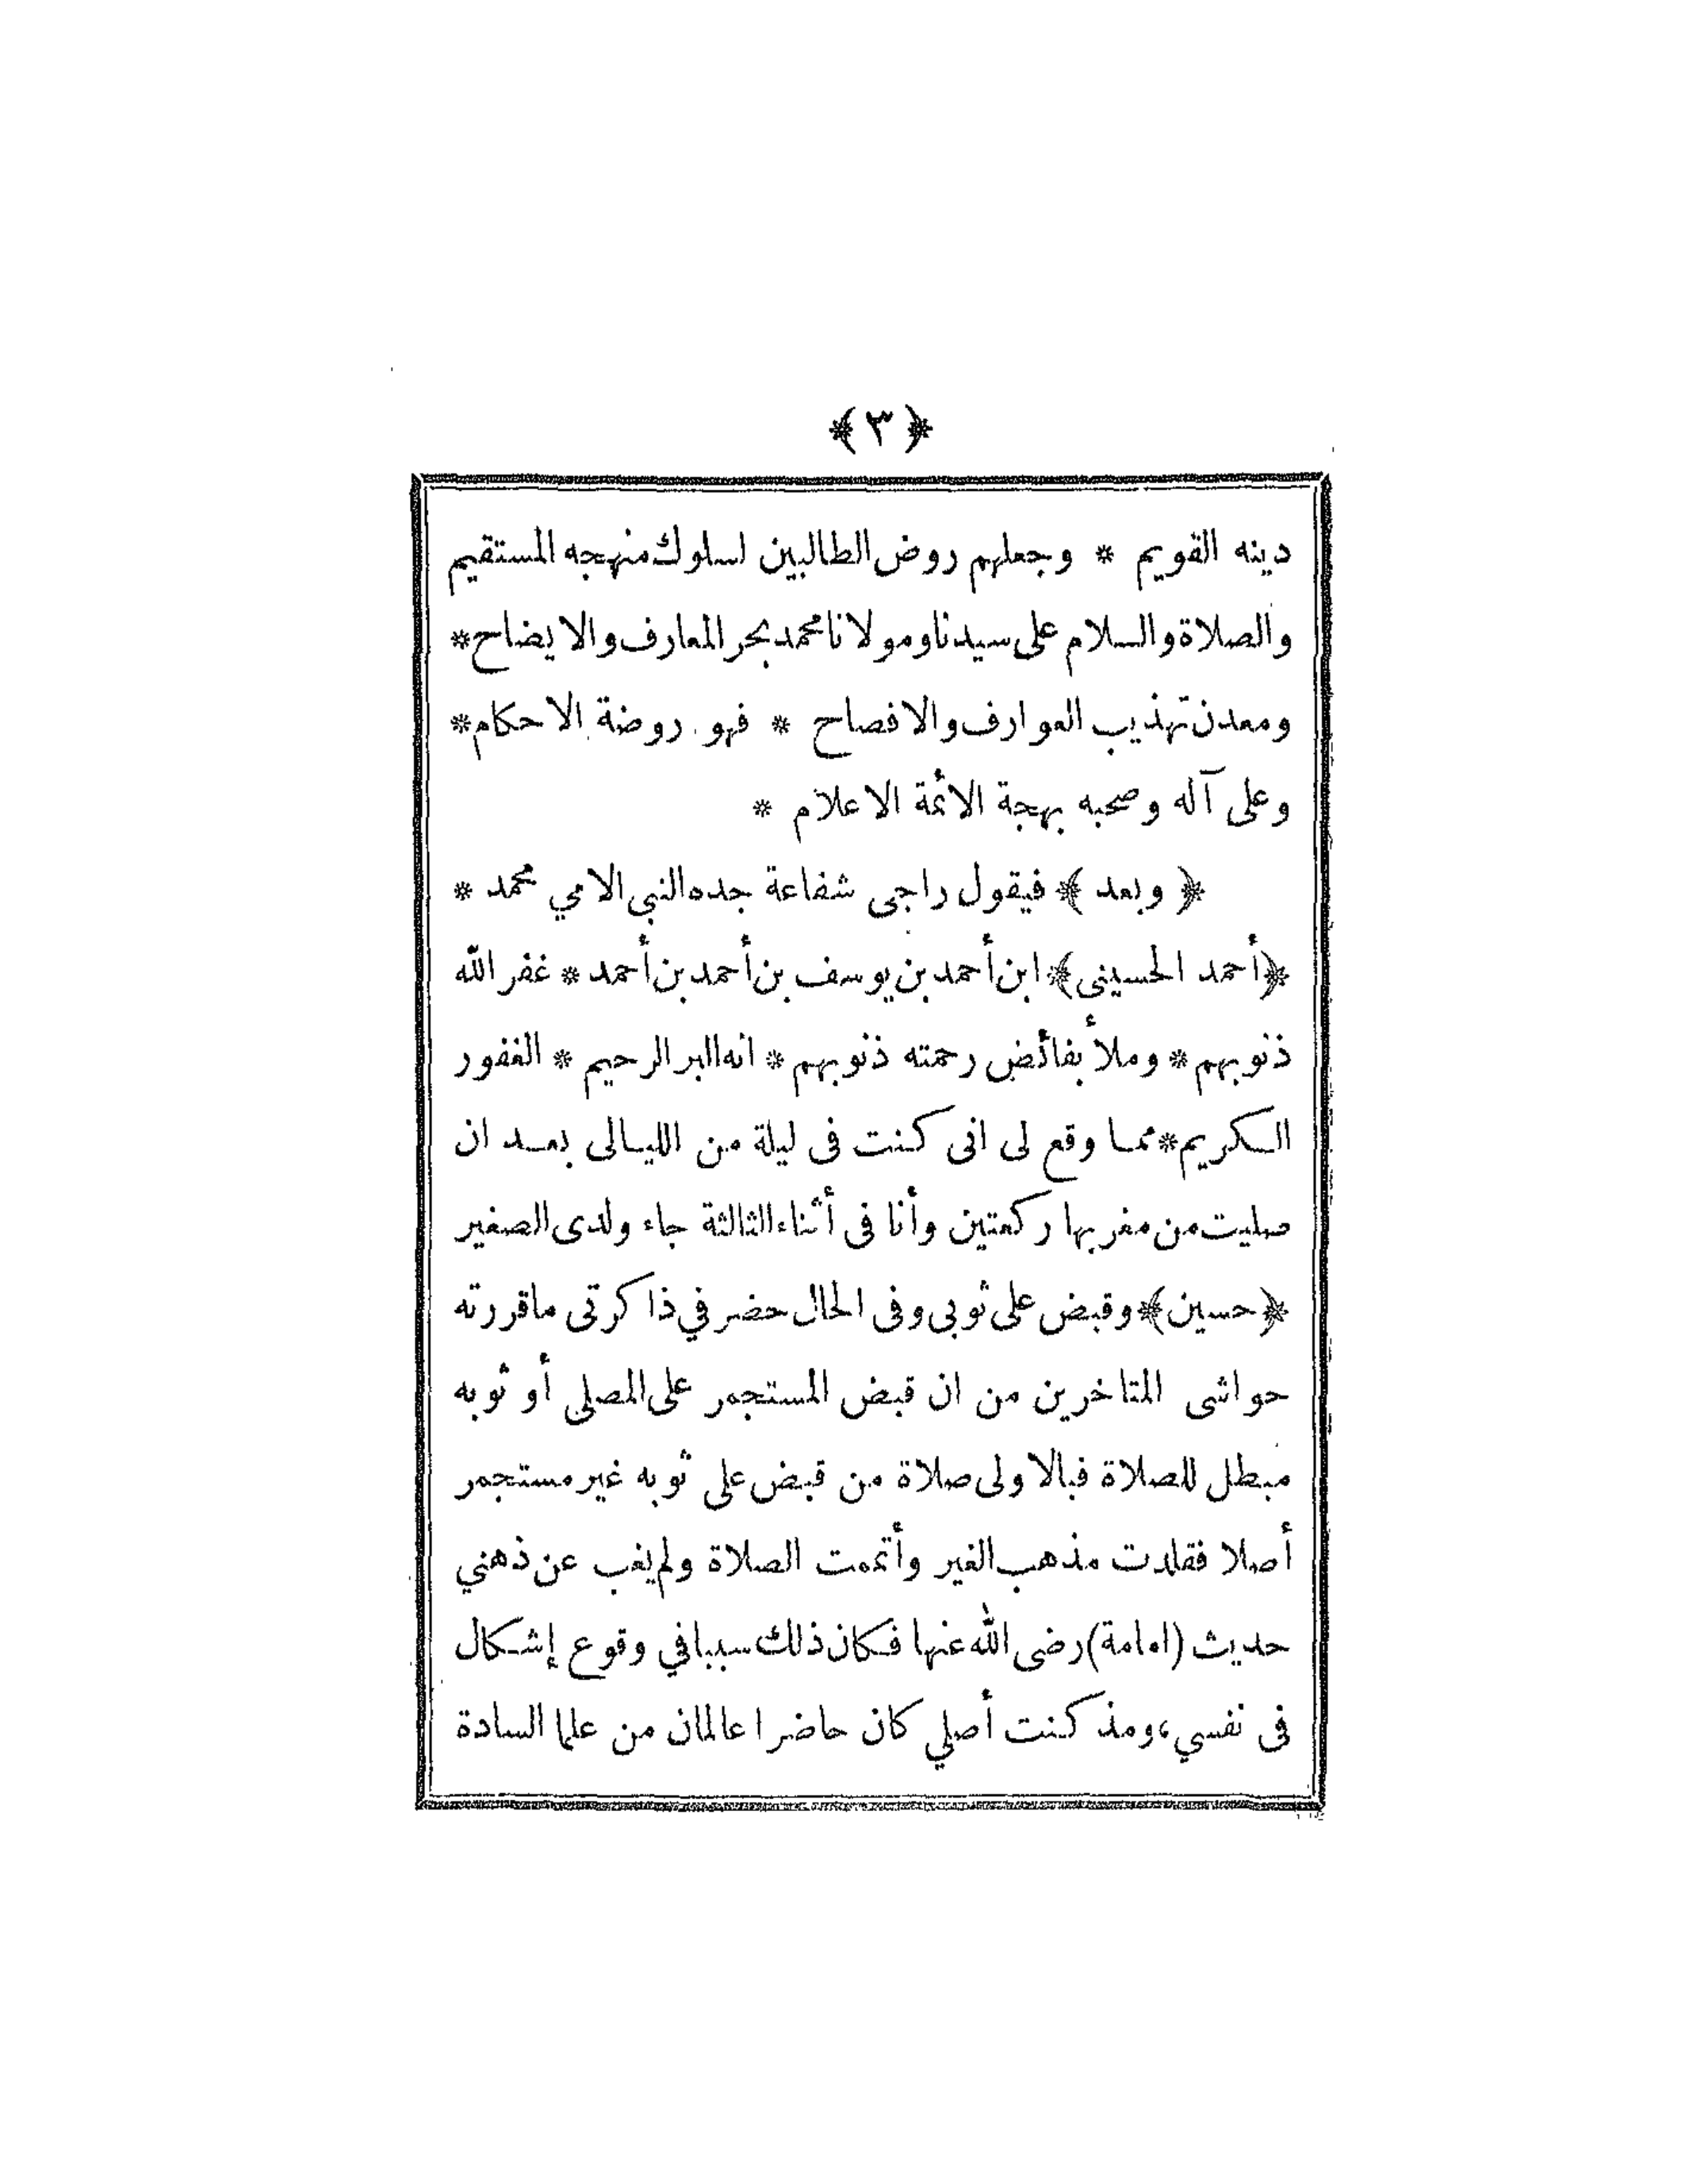 ﴿ ٣ ﴾
دينه القويم * وجعلهم روض الطالبين لسلوك منهجه المستقيم
والصلاة والسلام على سيدنا ومولانا محمد بحر المعارف والايضاح *
ومعدن تهذيب العوارف والافصاح * فهو روضة الاحكام *
وعلى آله وصحبه بهجة الائمة الاعلام *
﴿ وبعد ﴾ فيقول راجى شفاعة جده النبي الامي محمد *
﴿ أحمد الحسينى ﴾ ابن أحمد بن يوسف بن أحمد بن أحمد * غفر الله
ذنوبهم * وملأ بفائض رحمته ذنوبهم * انه البر الرحيم * الغفور
الكريم * مما وقع لى انى كنت فى ليلة من الليالى بعد ان
صليت من مغربها ركعتين وأنا فى أثناء الثالثة جاء ولدى الصغير
﴿ حسين ﴾ وقبض على ثوبى وفى الحال حضر في ذاكرتى ماقررته
حواشى المتاخرين من ان قبض المستجمر على المصلي أو ثوبه
مبطل للصلاة فبالاولى صلاة من قبض على ثوبه غير مستجمر
أصلا فقلدت مذهب الغير وأتممت الصلاة ولم يغب عن ذهني
حديث (امامة) رضى الله عنها فكان ذلك سببا في وقوع إشكال
فى نفسي، ومذ كنت أصلي كان حاضرا عالمان من علما السادة